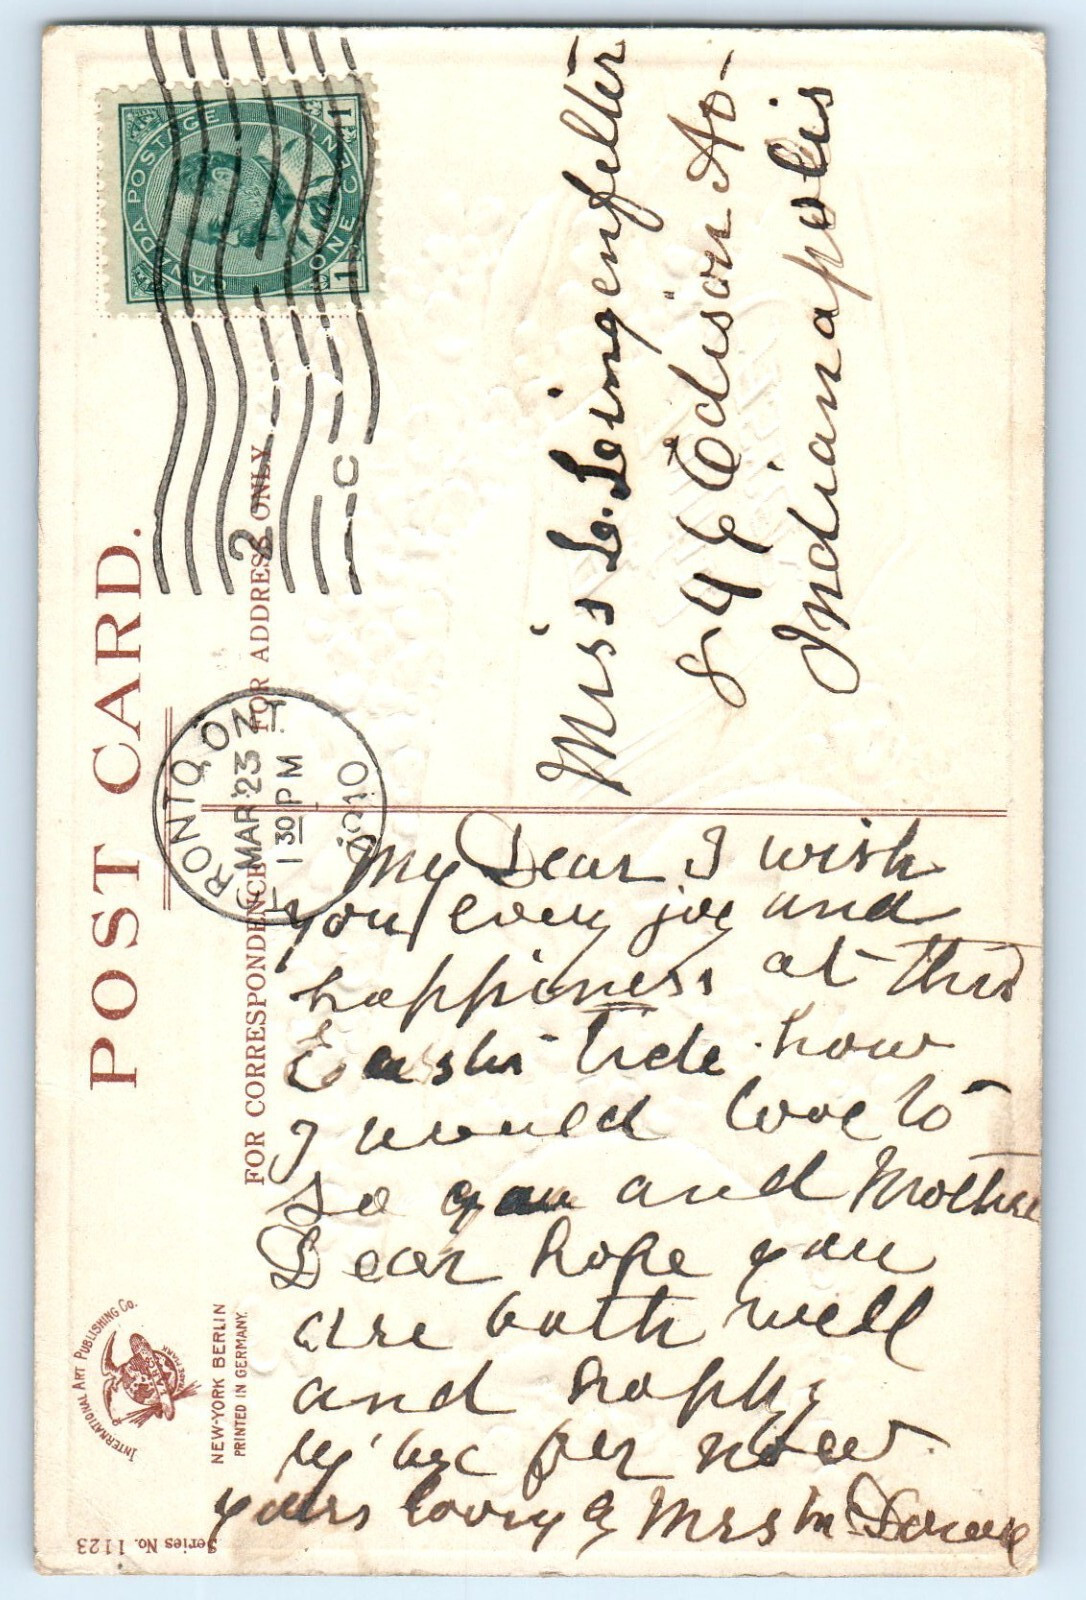 POST CARD.
FOR CORRESPONDENCE
FOR ADDRESS ONLY
CANADA POSTAGE
ONE CENT
1 1
2
C
TORONTO, ONT
MAR 23
1 30 PM
1910
Miss L. Lingenfelter
846 Edison Av-
Indianapolis
My Dear I wish
you every joy and
happiness at this
Easter tide how
I would love to
se you and Mother
Dear hope you
are both well
and happy
by bye for now
yours loving
Mrs M
INTERNATIONAL ART PUBLISHING CO.
TRADE MARK
NEW-YORK BERLIN
PRINTED IN GERMANY.
Series No. 1123